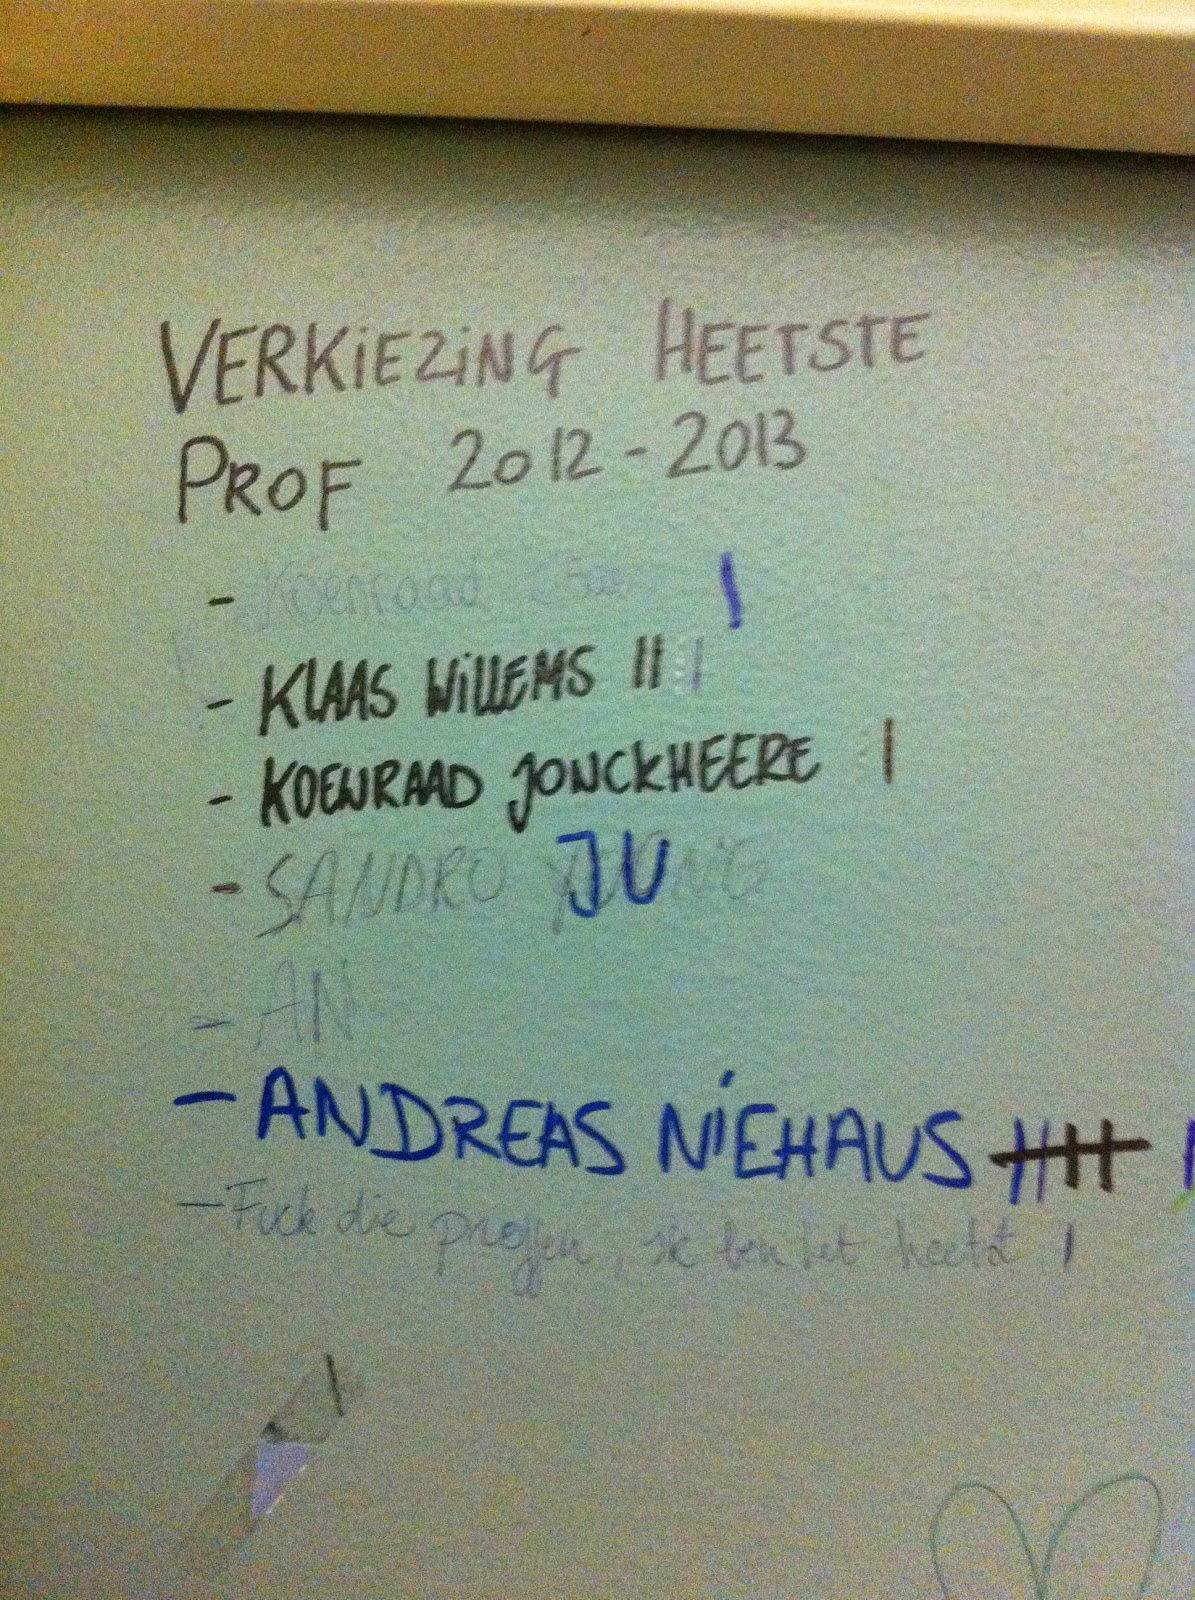 VERKIEZING HEETSTE
PROF 2012-2013
- Koenraad
- KLAAS WILLEMS III
- KOENRAAD JONCKHEERE I
- SANDRO JU
- AN
- ANDREAS NIEHAUS IIII I
- Fuck die proffen, ik ben het heetst I